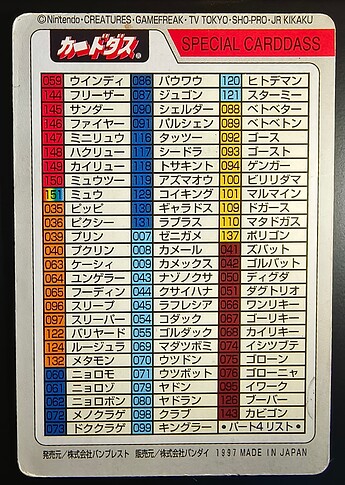 ©Nintendo·CREATURES·GAMEFREAK·TV TOKYO·SHO-PRO·JR KIKAKU
カードダス®
SPECIAL CARDDASS
059 ウインディ
144 フリーザー
145 サンダー
146 ファイヤー
147 ミニリュウ
148 ハクリュー
149 カイリュー
150 ミュウツー
151 ミュウ
035 ピッピ
036 ピクシー
039 プリン
040 プクリン
063 ケーシィ
064 ユンゲラー
065 フーディン
096 スリープ
097 スリーパー
122 バリヤード
124 ルージュラ
132 メタモン
060 ニョロモ
061 ニョロゾ
062 ニョロボン
072 メノクラゲ
073 ドククラゲ
086 パウワウ
087 ジュゴン
090 シェルダー
091 パルシェン
116 タッツー
117 シードラ
118 トサキント
119 アズマオウ
129 コイキング
130 ギャラドス
131 ラプラス
007 ゼニガメ
008 カメール
009 カメックス
043 ナゾノクサ
044 クサイハナ
045 ラフレシア
054 コダック
055 ゴルダック
069 マダツボミ
070 ウツドン
071 ウツボット
079 ヤドン
080 ヤドラン
098 クラブ
099 キングラー
120 ヒトデマン
121 スターミー
088 ベトベター
089 ベトベトン
092 ゴース
093 ゴースト
094 ゲンガー
100 ビリリダマ
101 マルマイン
109 ドガース
110 マタドガス
137 ポリゴン
041 ズバット
042 ゴルバット
050 ディグダ
051 ダグトリオ
066 ワンリキー
067 ゴーリキー
068 カイリキー
074 イシツブテ
075 ゴローン
076 ゴローニャ
095 イワーク
126 ブーバー
143 カビゴン
•パート4リスト•
発売元/株式会社バンプレスト 販売元/株式会社バンダイ 1997 MADE IN JAPAN